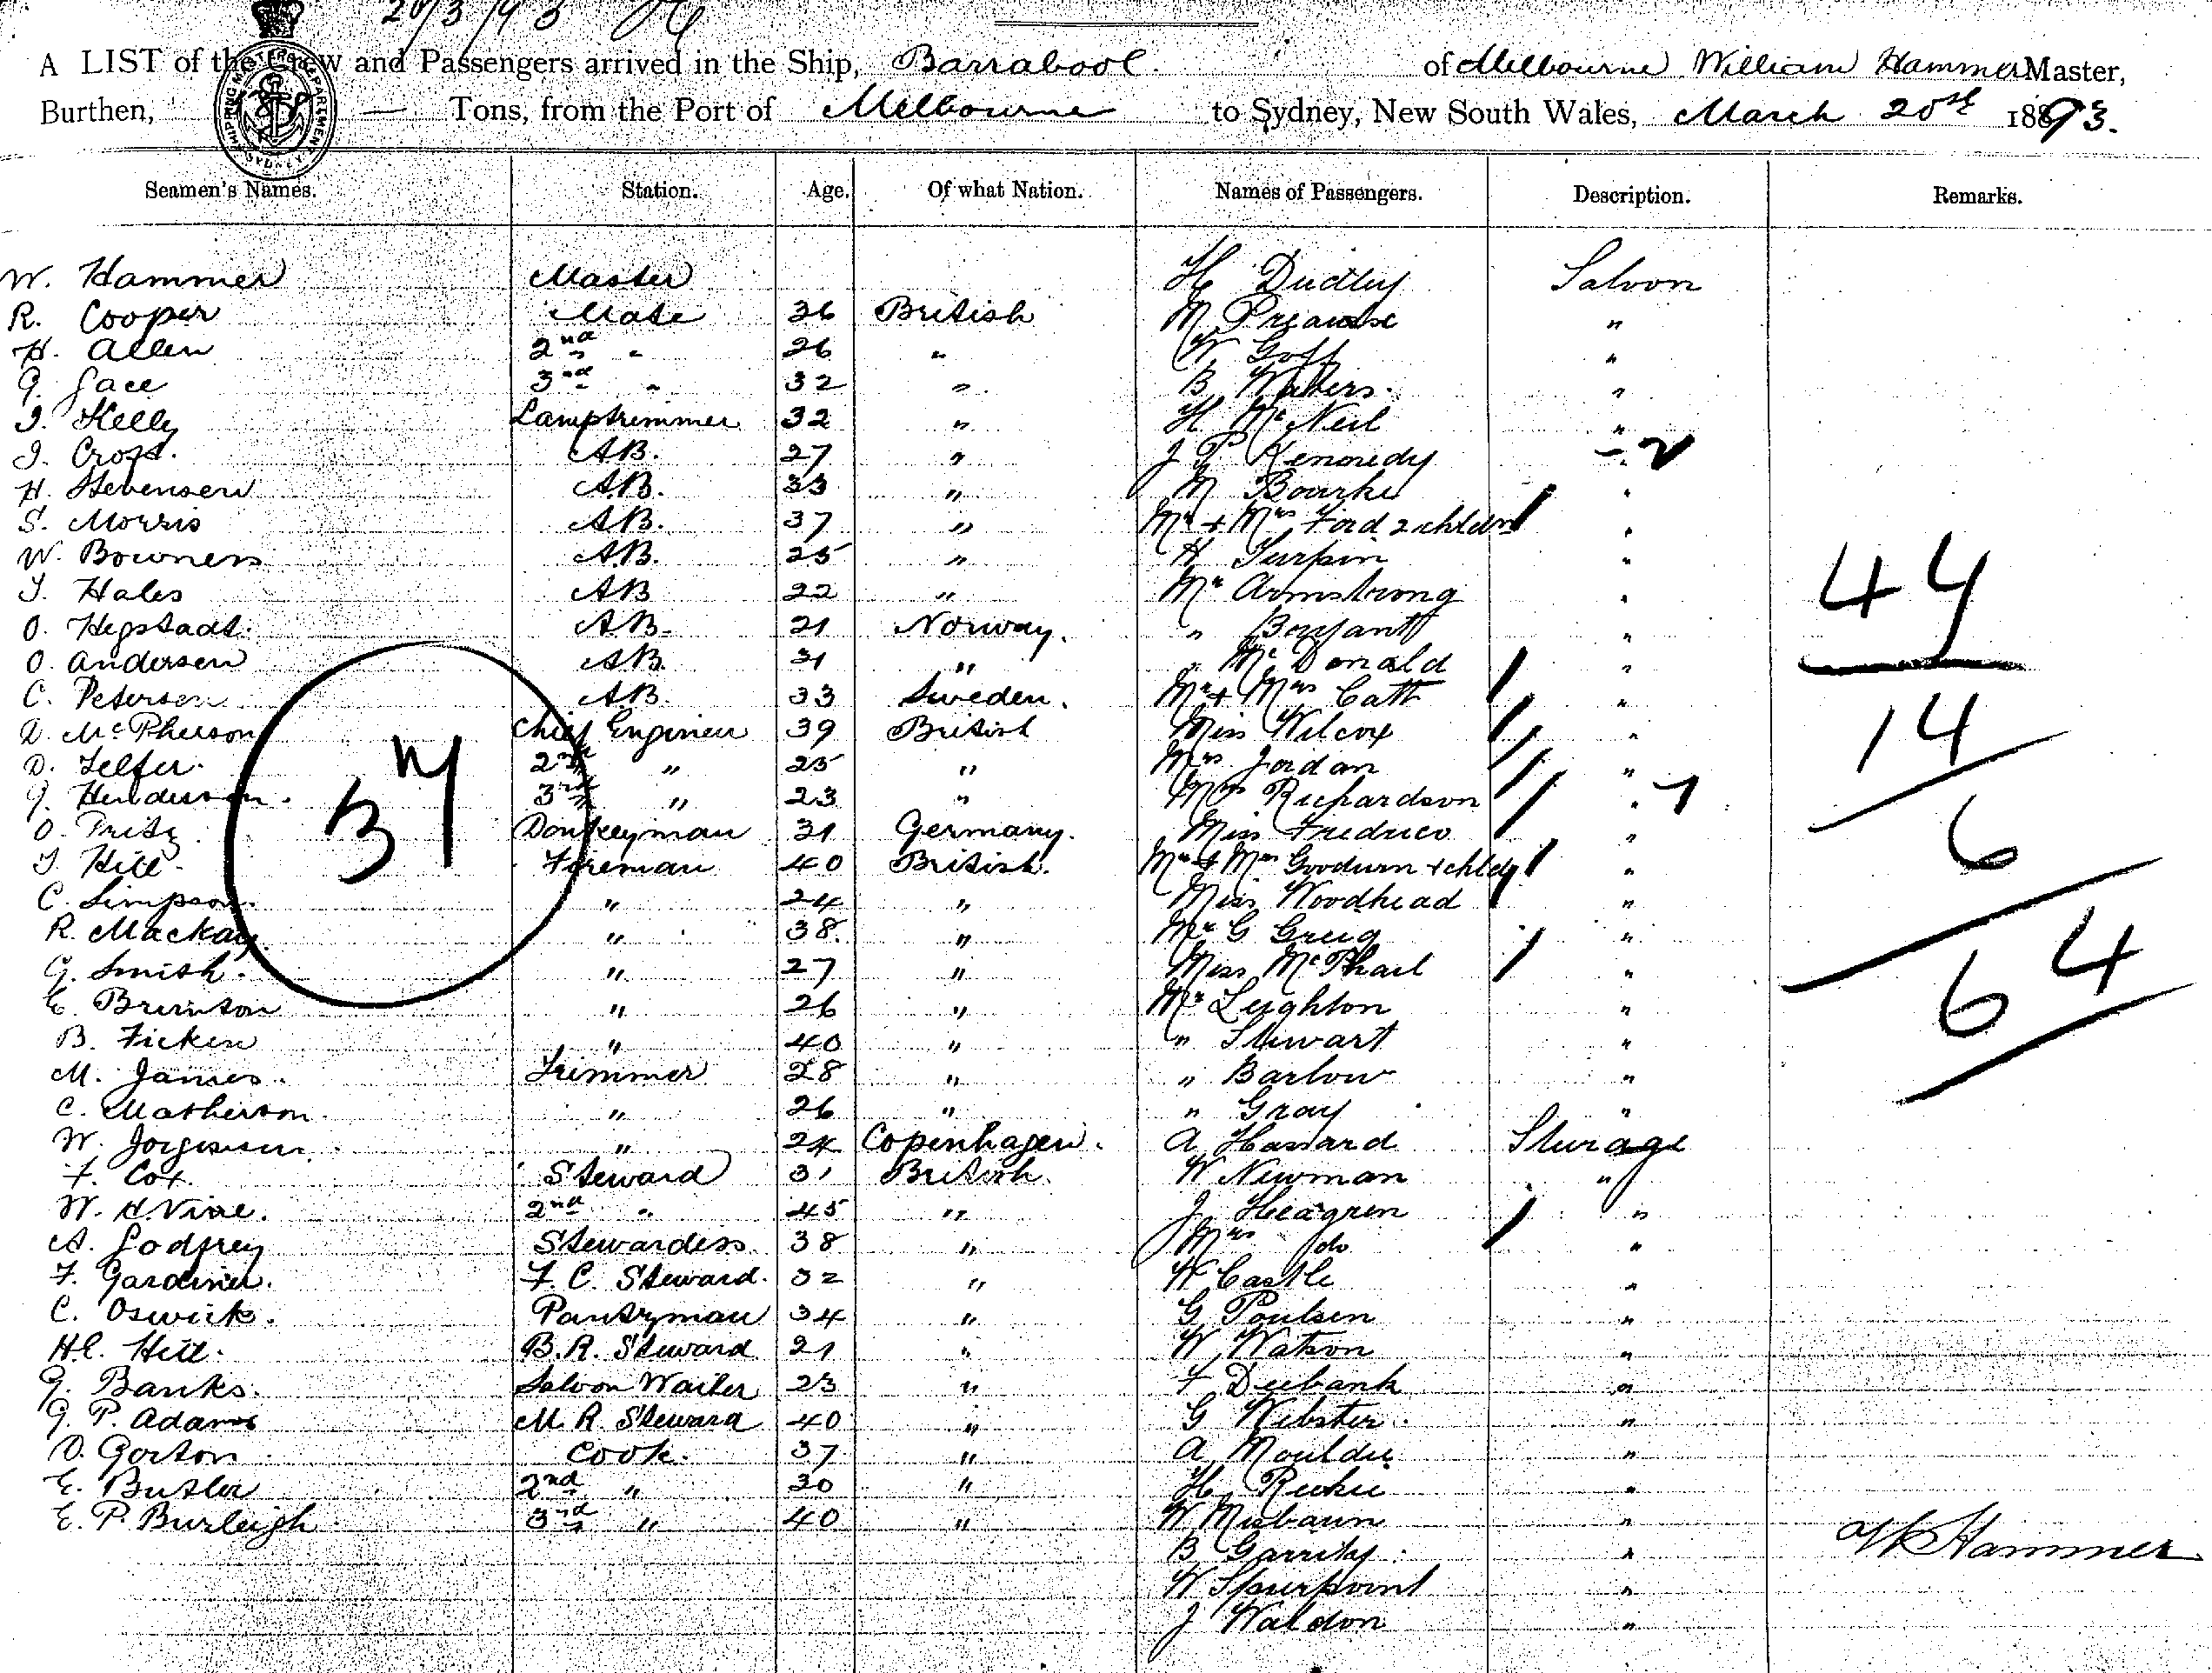 20/3/93
A LIST of the Crew and Passengers arrived in the Ship, Barrabool of Melbourne William Hammer Master,
Burthen, — Tons, from the Port of Melbourne to Sydney, New South Wales, March 20th 1893.
Seamen's Names. Station. Age. Of what Nation. Names of Passengers. Description. Remarks.
W. Hammer Master H Dudley Saloon
R. Cooper Mate 36 British M "
H. Allen 2nd " 26 " W Goff "
G. Jace 3rd " 32 " B Waters "
J. Kelly Lamptrimmer 32 " H McNeil "
J. Cross. AB. 27 " J P Kennedy " 2
H. Stevensen AB. 33 " M Bourke "
S. Morris AB. 37 " Mr + Mrs Ford 2 chldrn "
W. Bowness AB. 25 " H Turpin "
T. Hales AB 22 " Mr Armstrong " 44
O. Hegstadt. AB. 21 Norway. " Bonyant "
O. Andersen AB. 31 " " McDonald "
C. Petersen AB. 33 Sweden. Mr + Mrs Catt "
D. McPherson Chief Engineer 39 British Miss Wilcox " 14
D. Telfer. 2nd " 25 " Mrs Jordan "
J. Henderson. 3rd " 23 " Mrs Richardson " 7
O. Pritz Donkeyman 31 Germany. Miss Fredrico "
T. Hill. Fireman 40 British. Mr + Mrs Goodurn + chld " 6
37
C. Simpson. " 24 " Miss Woodhead "
R. Mackay. " 38. " Mr G Greig "
G. Smith. " 27 " Miss McPhail " 64
E. Brunton " 26 " Mr Leighton "
B. Ficken " 40 " " Stewart "
M. James. Trimmer 28 " " Barlow "
C. Matherson. " 26 " " Gray "
W. Jorgensen. " 24 Copenhagen. A Hassard Sturage
F. Cox. Steward 31 British. W Newman "
W. H. Vine. 2nd " 45 " J Heagren "
A. Godfrey Stewardess. 38 " Mrs do "
F. Gardiner. F. C. Steward. 32 " W Castle "
C. Oswick. Pantryman 34 " G Poulsen "
H.C. Hill. B.R. Steward. 21 " W Watson "
G. Banks. Saloon Waiter 23 " F Deebank "
G. P. Adams M. R. Steward 40 " G Webster. "
O. Gorton Cook. 37 " A Moulder "
E. Butler 2nd " 30 " H "
E. P. Burleigh 3rd " 40 " W "
B Garrity. " W Hammer
W Spurpoint "
J Waldon "